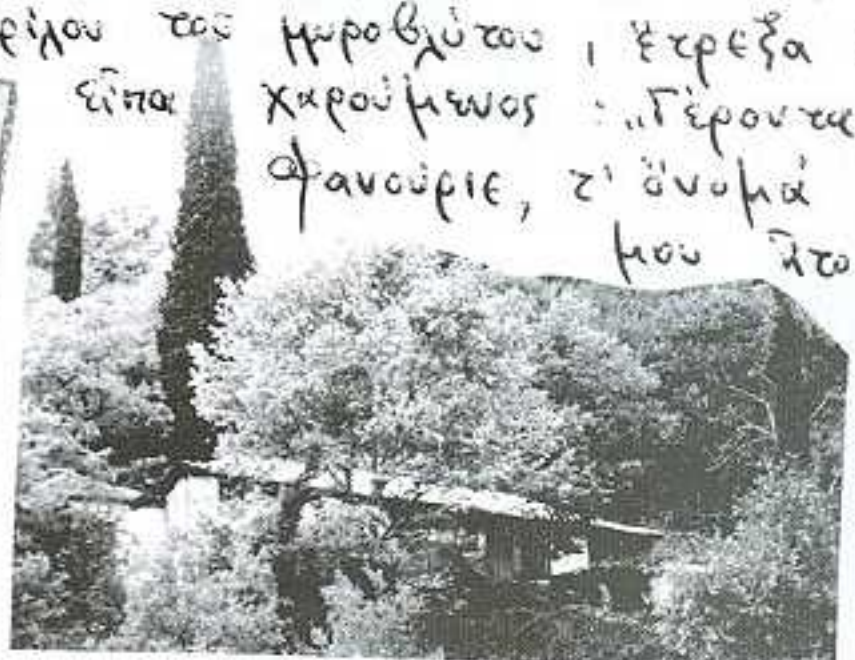 ρίλου τοῦ μυροβλύτου, ἔτρεξα
εἶπα χαρούμενος : „Γέροντα
Φανούριε, τ' ὄνομά
μου